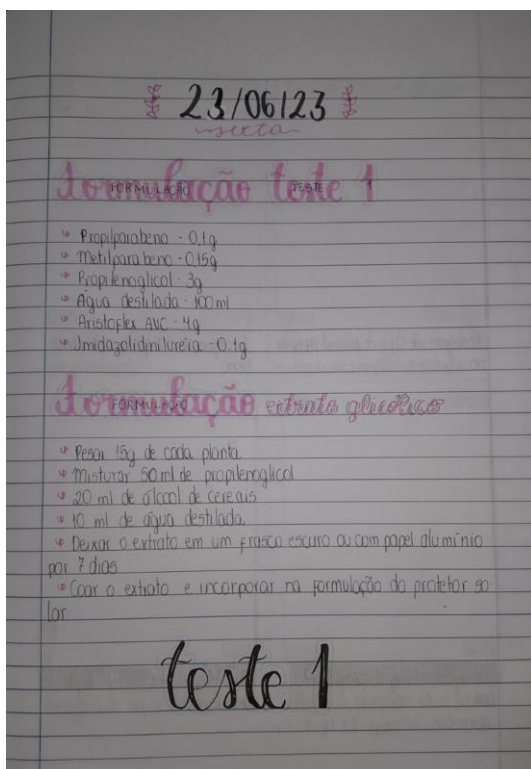 23/06/23
sexta
Formulação teste 1
FORMULAÇÃO TESTE
Propilparabeno - 0,1g
Metilparabeno - 0,15g
Propilenoglicol - 3g
Água destilada - 100ml
Aristoflex AVC - 4g
Imidazolidinilureia - 0,1g
Formulação extrato glicólico
FORMULAÇÃO
Pesar 15g de cada planta
Misturar 50ml de propilenoglicol
20 ml de álcool de cereais
10 ml de água destilada
Deixar o extrato em um frasco escuro ou com papel alumínio
por 7 dias
Coar o extrato e incorporar na formulação do protetor so
lar
teste 1